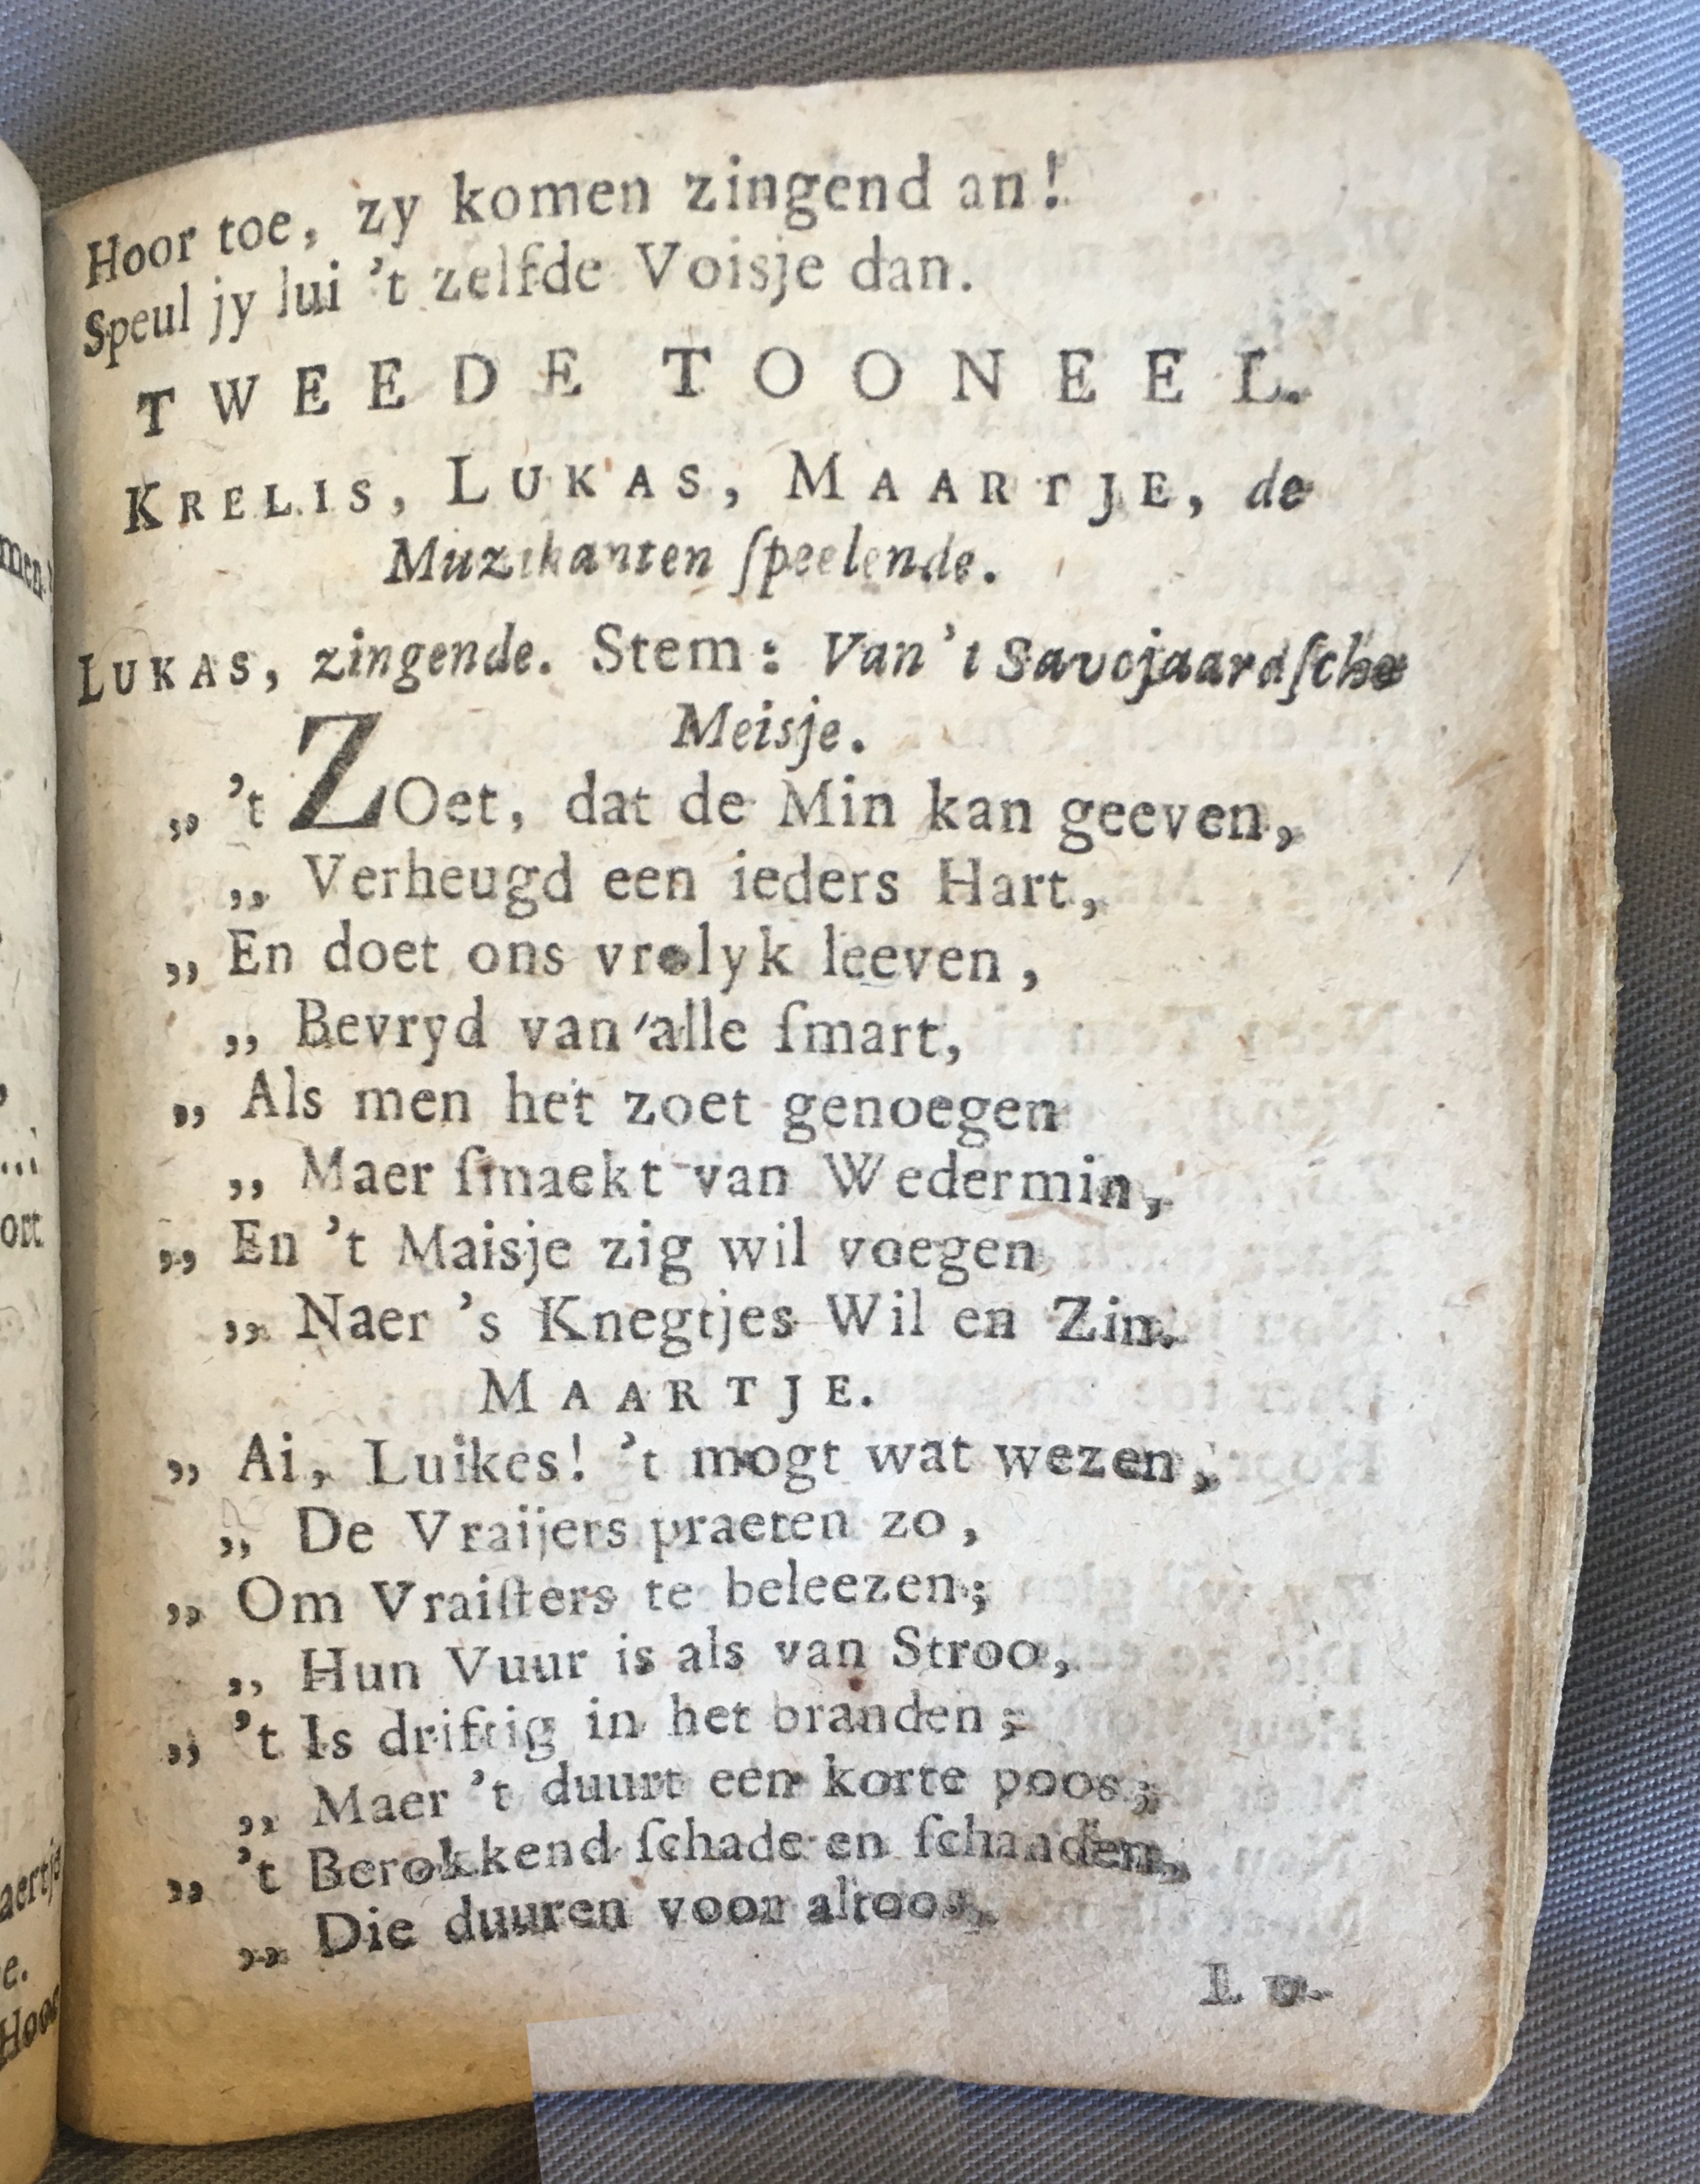 Hoor toe, zy komen zingend an!
Speul jy lui 't zelfde Voisje dan.
TWEEDE TOONEEL.
KRELIS, LUKAS, MAARTJE, de
Muzikanten ſpeelende.
LUKAS, zingende. Stem: Van 't Savojaardſche
Meisje.
„ 't ZOet, dat de Min kan geeven,
„ Verheugd een ieders Hart,
„ En doet ons vrolyk leeven,
„ Bevryd van alle ſmart,
„ Als men het zoet genoegen
„ Maer ſmaekt van Wedermin,
„ En 't Maisje zig wil voegen
„ Naer 's Knegtjes Wil en Zin.
MAARTJE.
„ Ai, Luikes! 't mogt wat wezen,
„ De Vraijers praeten zo,
„ Om Vraiſters te beleezen;
„ Hun Vuur is als van Stroo,
„ 't Is driftig in het branden;
„ Maer 't duurt een korte poos;
„ 't Berokkend ſchade en ſchanden,
„ Die duuren voor altoos.
men
...
ort
aertje
e.
Hoor